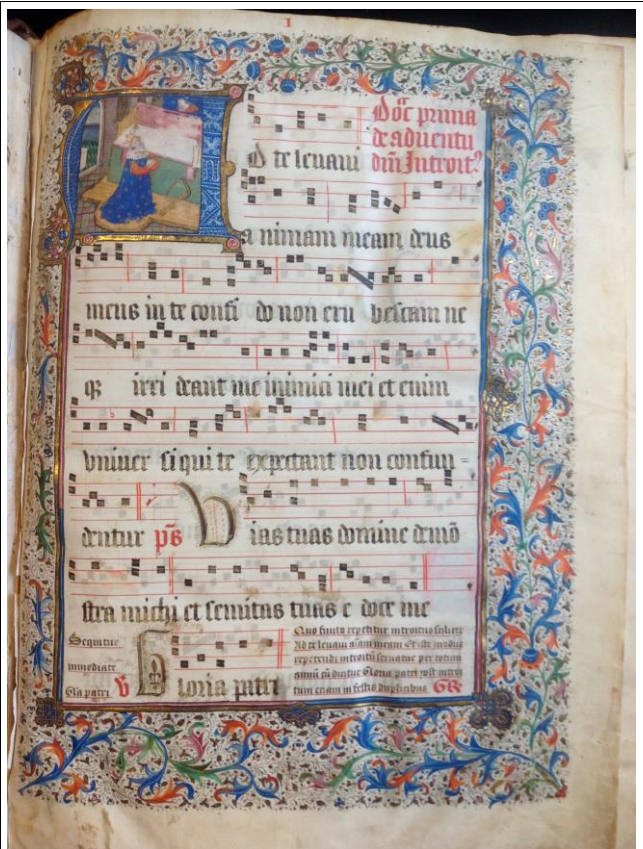 I
Doc prima
de aduentu
dm̄ Introit?
D te leuaui
a nimam meam deus
meus in te confi do non eru bescam ne
qꝫ irri deant me inimici mei et enim
vniuer si qui te expectant non confun=
dentur ps̄
V ias tuas domine demō
stra michi et semitas tuas e doce me
Sequitur
inmediate
Gl̄a patri
V̄
G loria patri
Quo finito repetitur introitus scilicet
Ad te leuaui aīam meam Et iste modus
repetendi introitū seruatur per totum
annū cū dicitur Gloria patri post introi
tum etiam in festis duplicibus GR